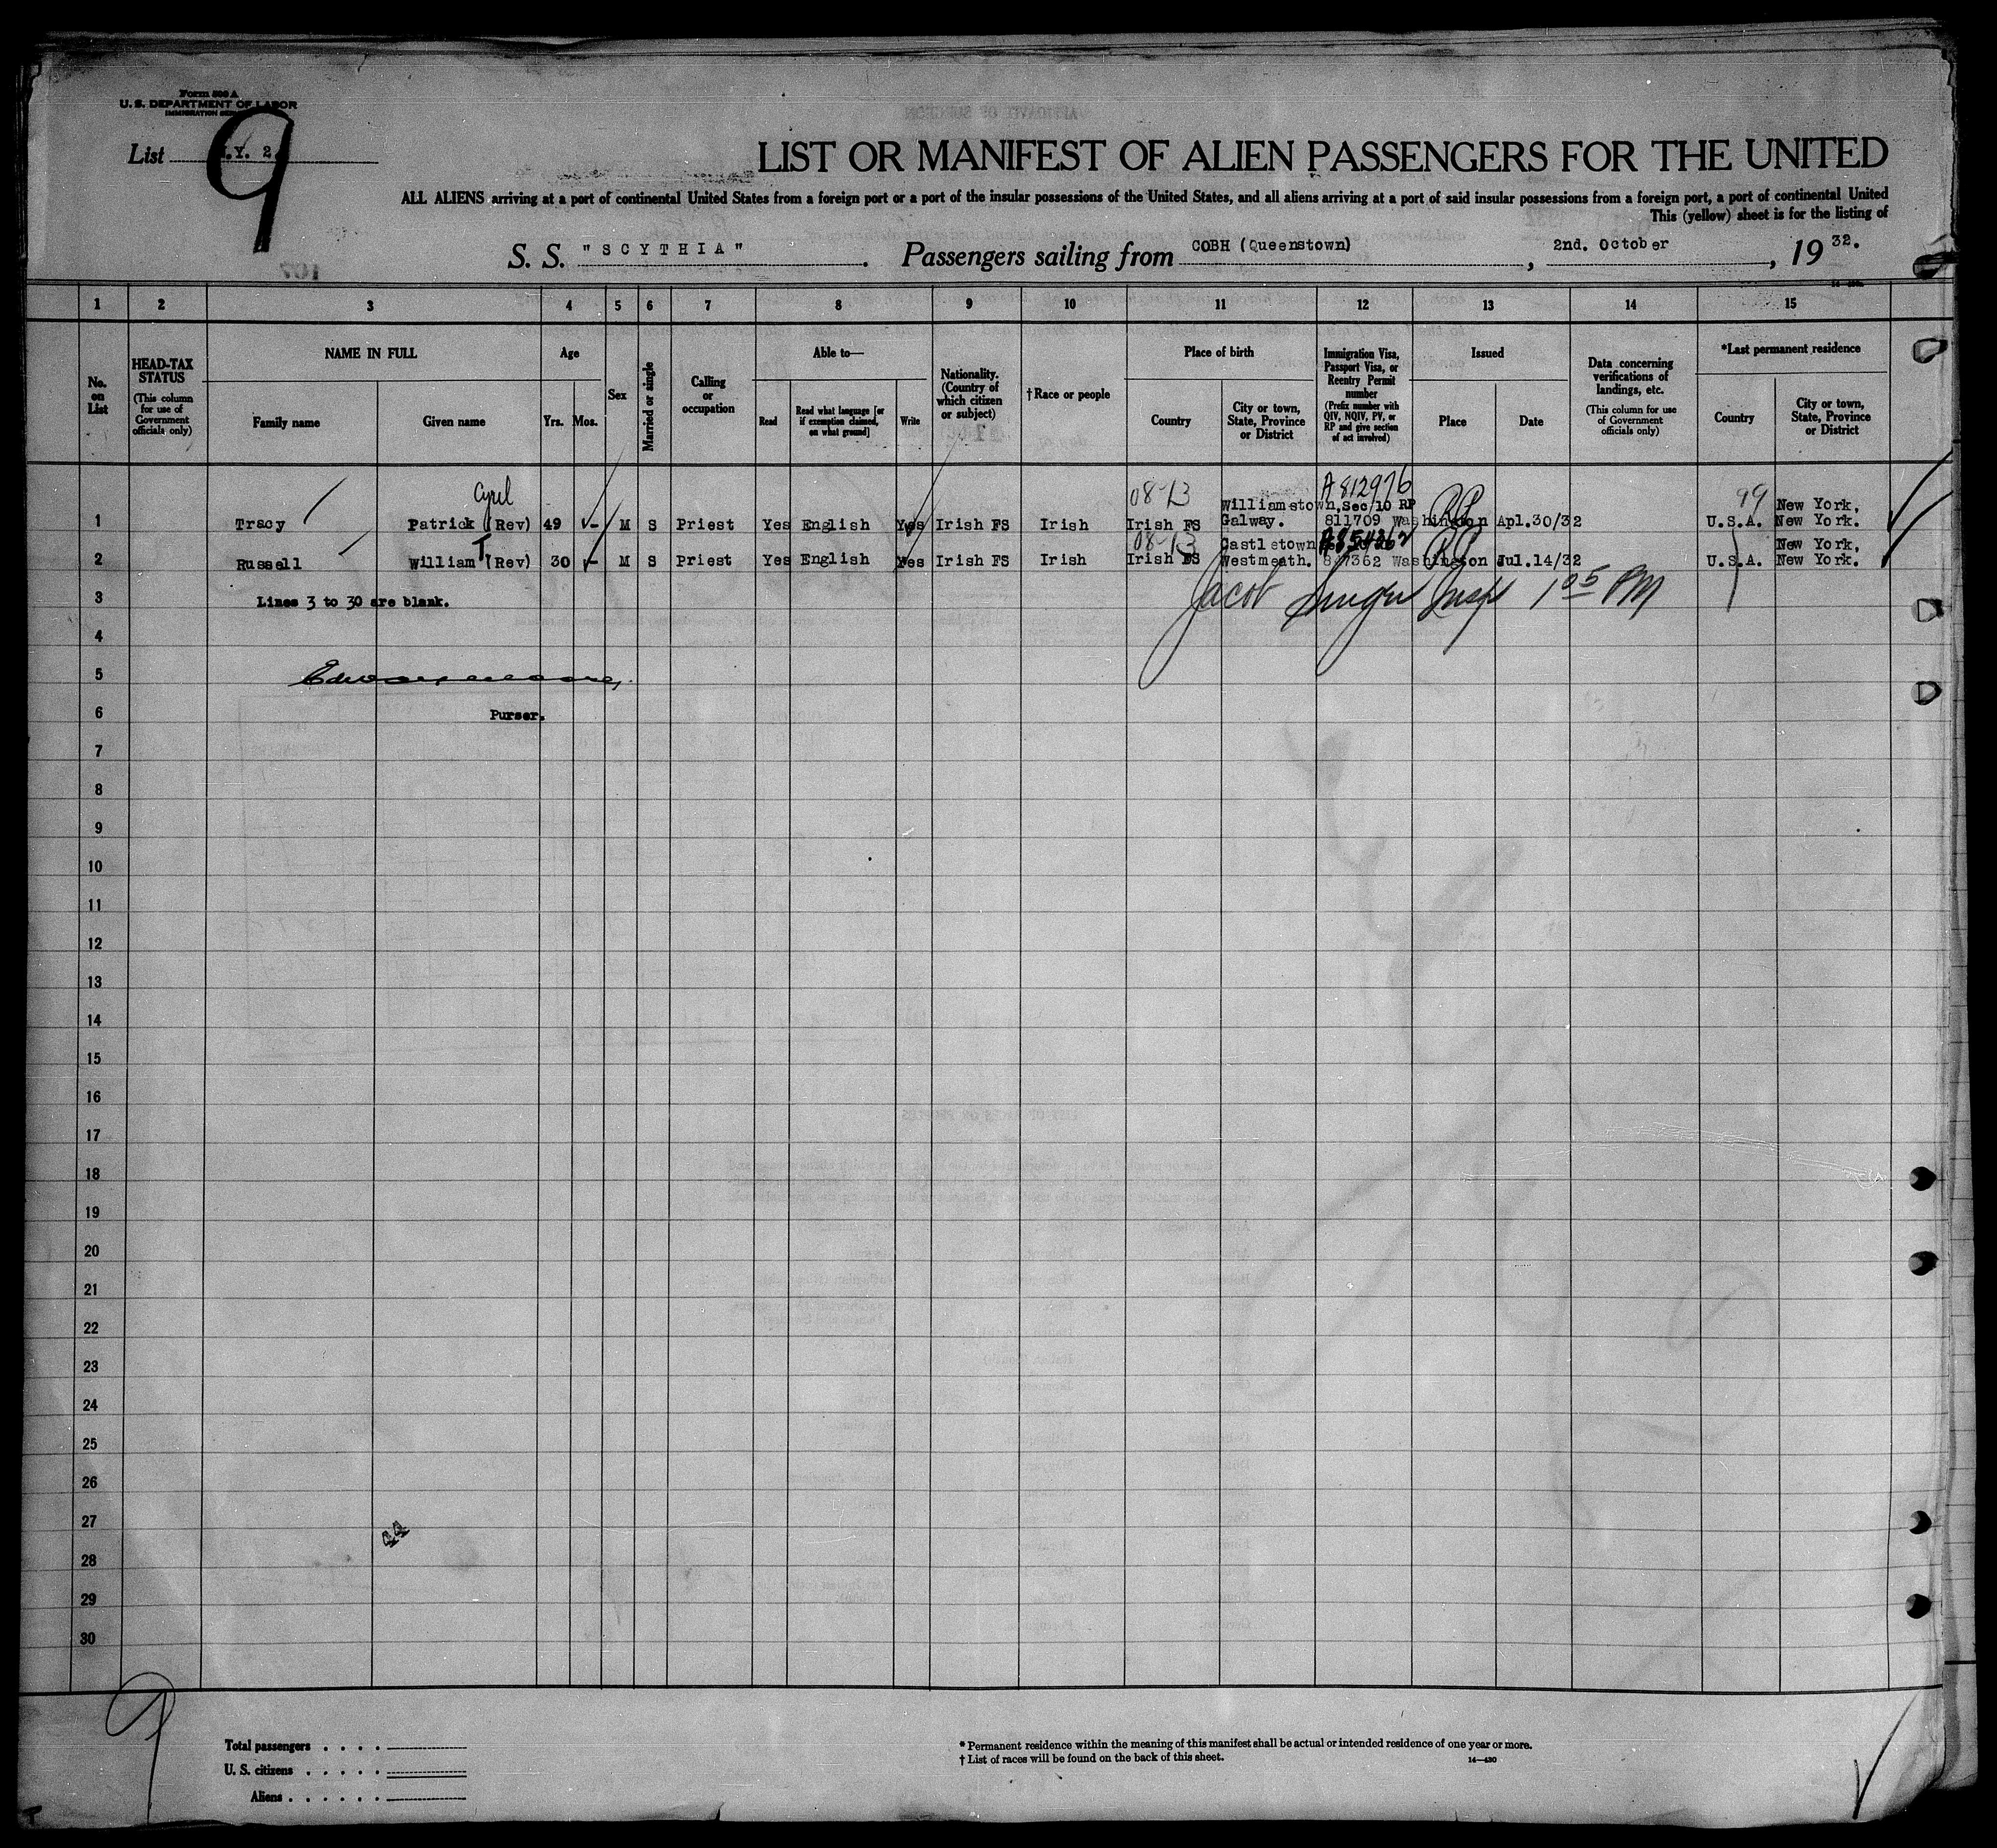 Form 500 A
U. S. DEPARTMENT OF LABOR
IMMIGRATION
List
.Y. 2.
9
LIST OR MANIFEST OF ALIEN PASSENGERS FOR THE UNITED
ALL ALIENS arriving at a port of continental United States from a foreign port or a port of the insular possessions of the United States, and all aliens arriving at a port of said insular possessions from a foreign port, a port of continental United
This (yellow) sheet is for the listing of
S. S. "SCYTHIA" . Passengers sailing from COBH (Queenstown) , 2nd. October , 19 32.
1 2 3 4 5 6 7 8 9 10 11 12 13 14 15
No. on List
HEAD-TAX STATUS
(This column for use of Government officials only)
NAME IN FULL
Family name
Given name
Age
Yrs.
Mos.
Sex
Married or single
Calling or occupation
Able to—
Read
Read what language [or if exemption claimed, on what ground]
Write
Nationality. (Country of which citizen or subject)
†Race or people
Place of birth
Country
City or town, State, Province or District
Immigration Visa, Passport Visa, or Reentry Permit number
(Prefix number with QIV, NQIV, PV, or RP and give section of act involved)
Issued
Place
Date
Data concerning verifications of landings, etc.
(This column for use of Government officials only)
*Last permanent residence
Country
City or town, State, Province or District
Cyril 08-13 A812976 99
Williamstown, Sec/10 RP RP New York,
1 Tracy Patrick (Rev) 49 - M S Priest Yes English Yes Irish FS Irish Irish FS Galway. 811709 Washington Apl.30/32 U.S.A. New York.
T 08-13 Castletown A854362 RP New York,
2 Russell William (Rev) 30 - M S Priest Yes English Yes Irish FS Irish Irish FS Westmeath. 847362 Washington Jul.14/32 U.S.A. New York.
3 Lines 3 to 30 are blank. Jacob Insp 1 05 PM
4
5
6 Purser.
7
8
9
10
11
12
13
14
15
16
17
18
19
20
21
22
23
24
25
26
27
28
29
30
9
Total passengers . . . .
U. S. citizens . . . . .
Aliens . . . . . .
* Permanent residence within the meaning of this manifest shall be actual or intended residence of one year or more.
† List of races will be found on the back of this sheet. 14—430